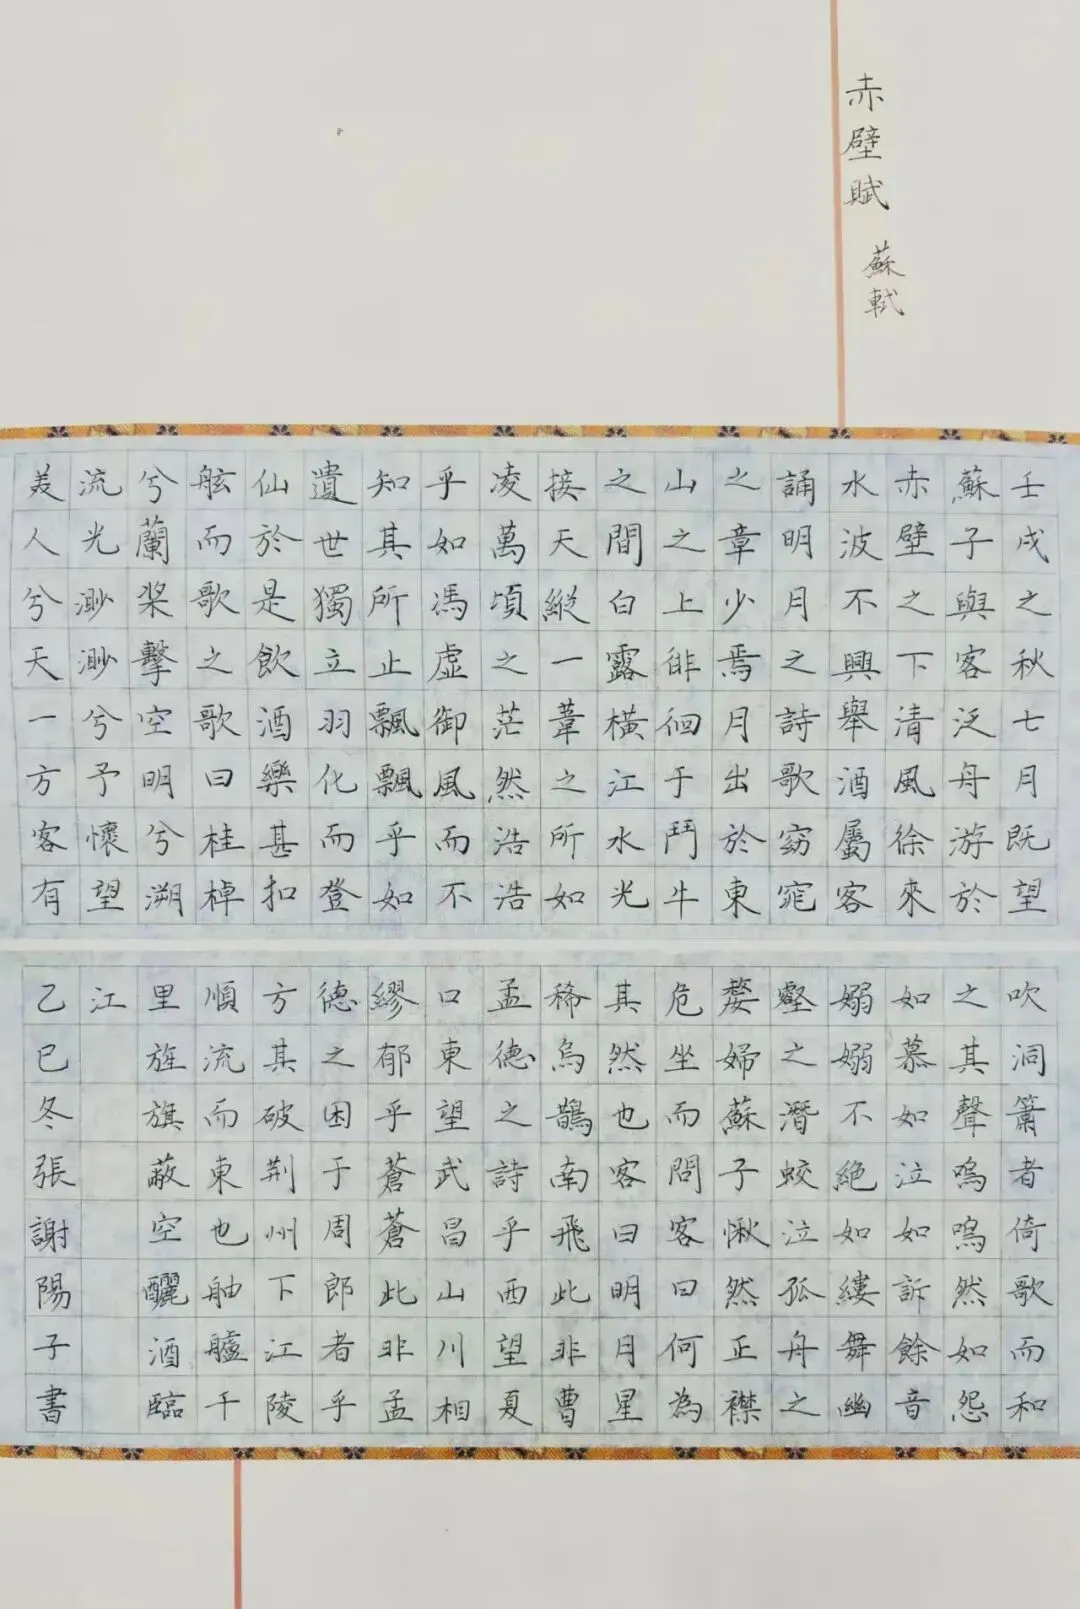 赤壁賦
蘇軾
壬戌之秋七月既望
蘇子與客泛舟游於
赤壁之下清風徐來
水波不興舉酒屬客
誦明月之詩歌窈窕
之章少焉月出於東
山之上徘徊于鬥牛
之間白露橫江水光
接天縱一葦之所如
凌萬頃之茫然浩浩
乎如馮虛御風而不
知其所止飄飄乎如
遺世獨立羽化而登
仙於是飲酒樂甚扣
舷而歌之歌曰桂棹
兮蘭桨擊空明兮溯
流光渺渺兮予懷望
美人兮天一方客有
吹洞簫者倚歌而和
之其聲嗚嗚然如怨
如慕如泣如訴餘音
嫋嫋不絕如縷舞幽
壑之潛蛟泣孤舟之
嫠婦蘇子愀然正襟
危坐而問客曰何為
其然也客曰明月星
稀烏鵲南飛此非曹
孟德之詩乎西望夏
口東望武昌山川相
繆郁乎蒼蒼此非孟
德之困于周郎者乎
方其破荆州下江陵
順流而東也舳艫千
里旌旗蔽空釃酒臨
江
乙巳冬張謝陽子書